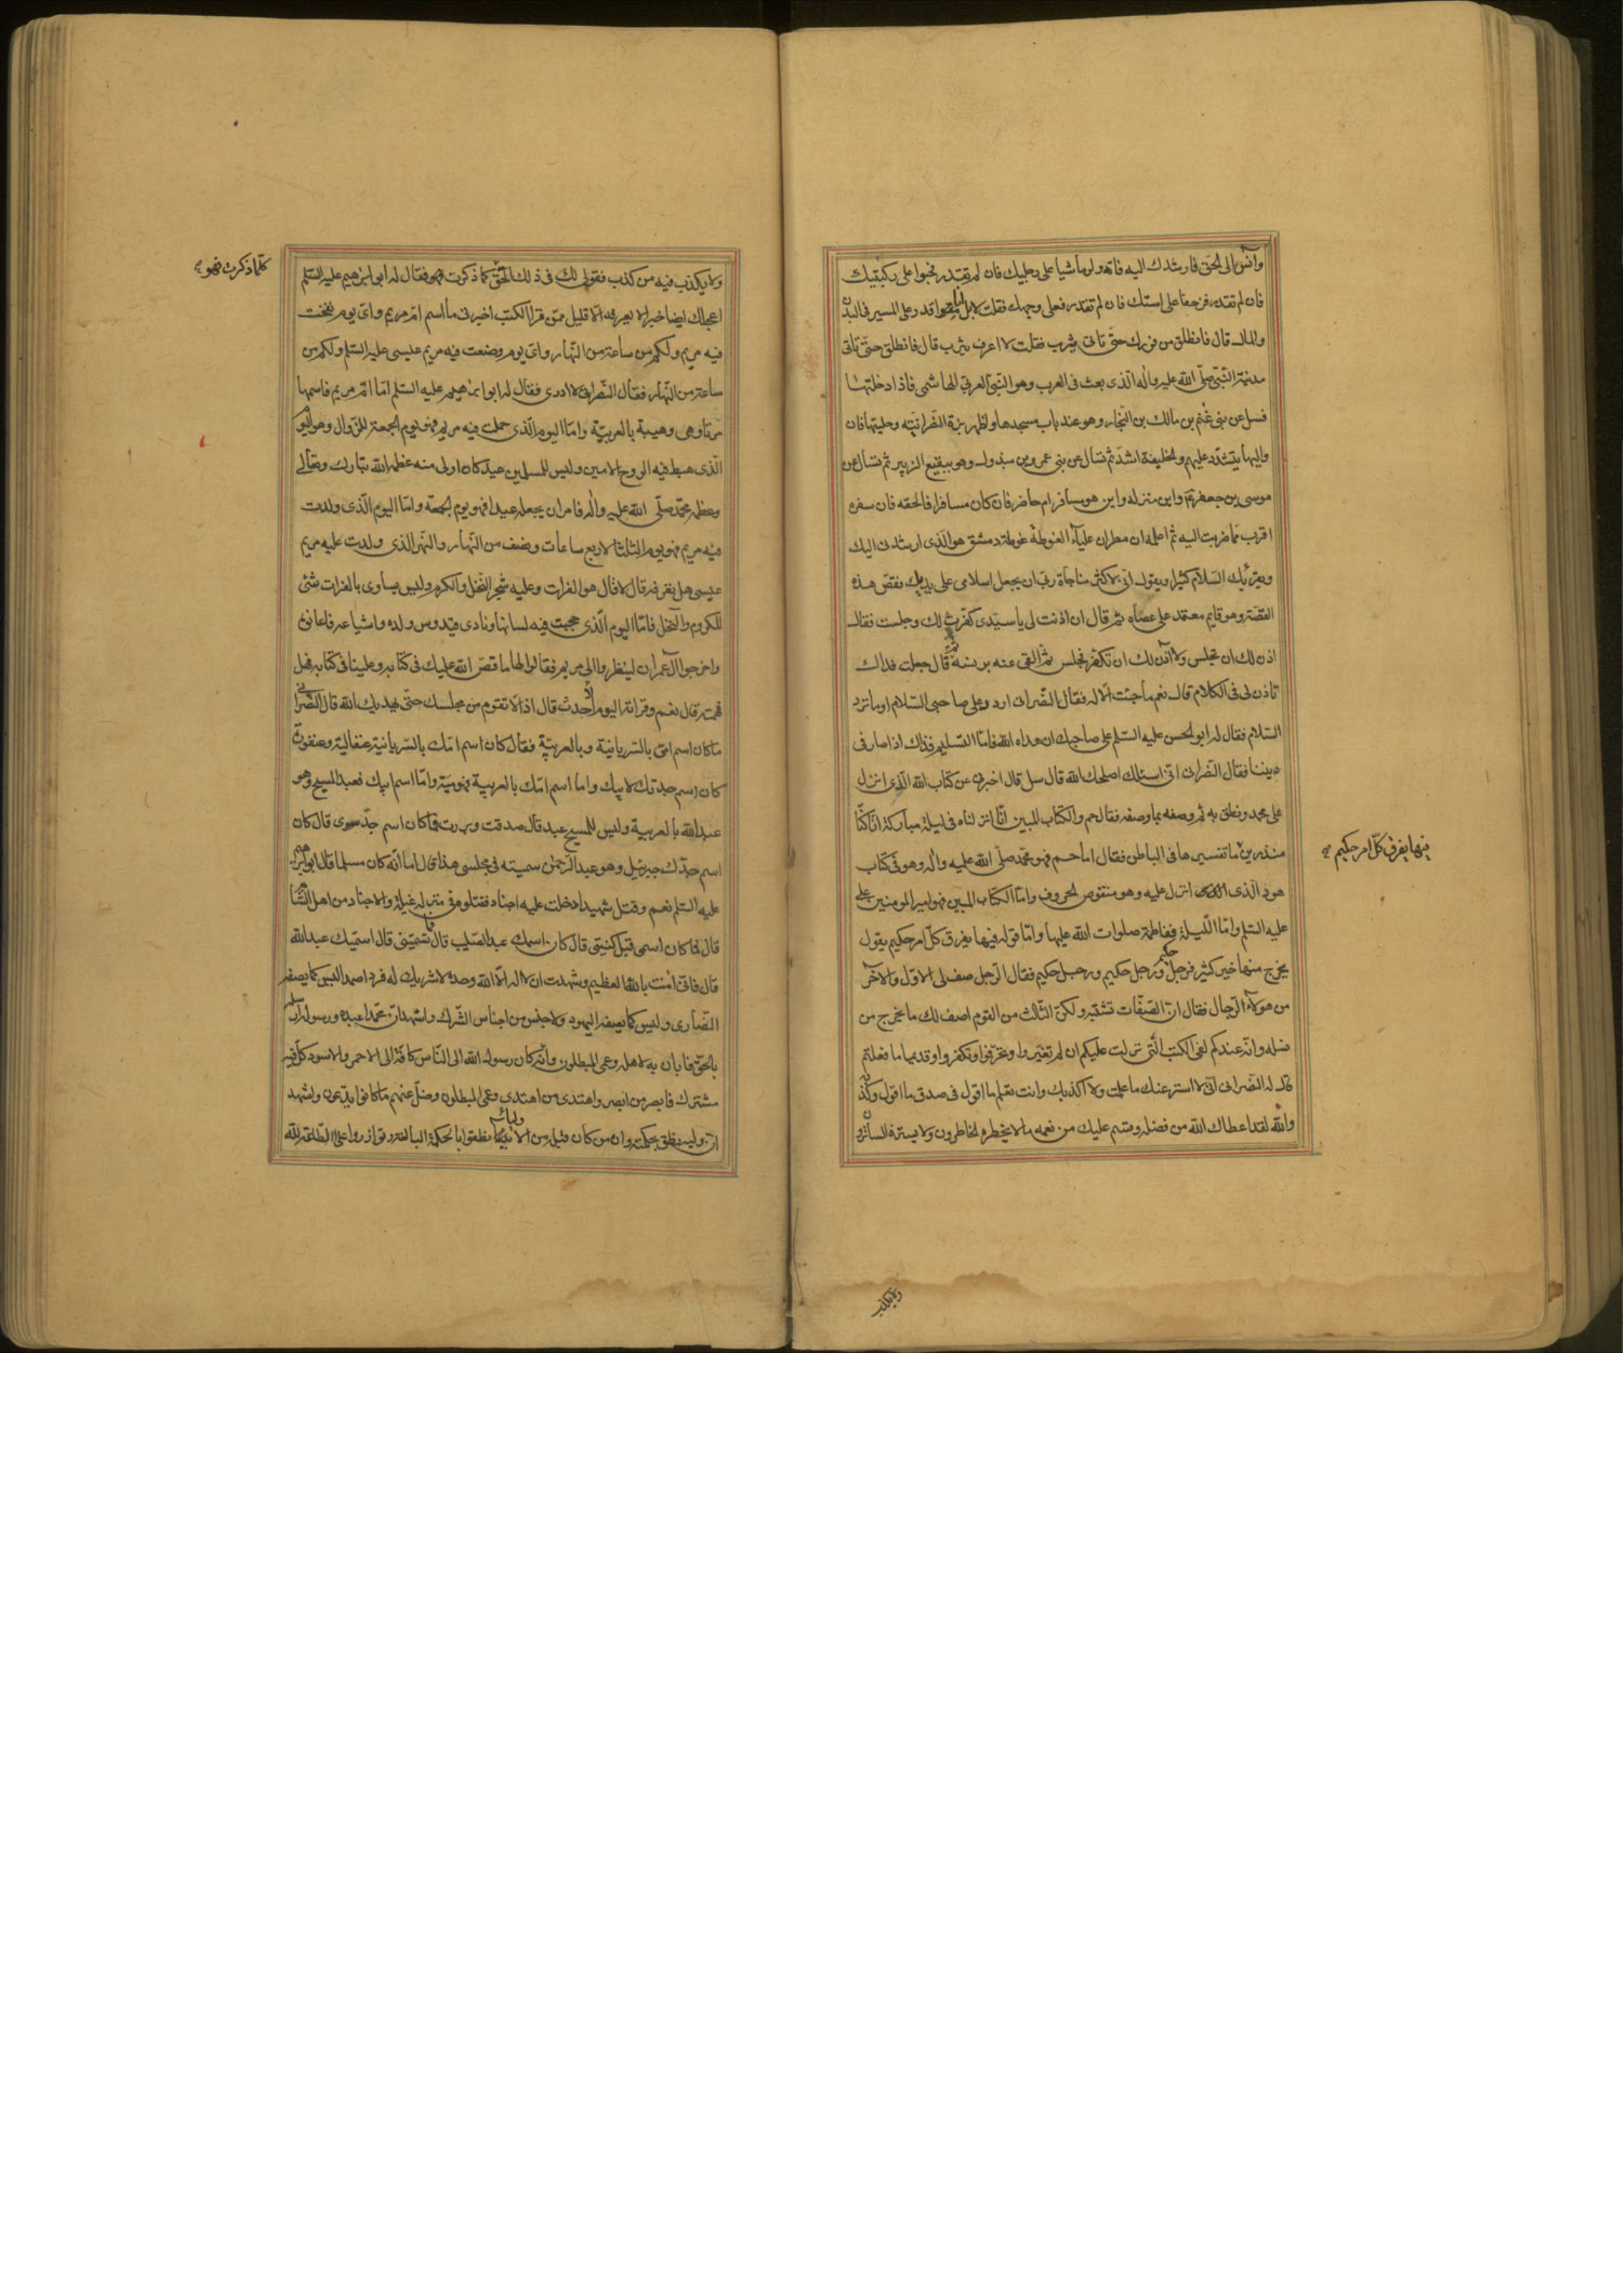 وآنس الى الحق فارشدك اليه فاته ولو ماشيا على رجليك فان لم تقدر فحبوا على ركبتيك
فان لم تقدر فزحفا على استك فان لم تقدر فعلى وجهك فقلت لا بل انا اقدر على المسير في البدن
والمال قال فانطلق من فورك حتى تاتى يثرب فقلت لا اعرف يثرب قال فانطلق حتى تاتى
مدينة النبى صلى الله عليه واله الذى بعث فى العرب وهو النبى العربى الهاشمى فاذا دخلتها
فسل عن بنى غنم بن مالك بن النجار وهو عند باب مسجدها واظهر بزة النصرانية وحليتها فان
واليها يتشدد عليهم والخليفة اشد ثم تسال عن بنى عمرو بن مبذول وهو ببقيع الزبير ثم تسال عن
موسى بن جعفر واين منزله واين هو مسافر ام حاضر فان كان مسافرا فالحقه فان سفره
اقرب مما ضربت اليه ثم اعلمه ان مطران علياء الغوطة غوطة دمشق هو الذى ارشدنى اليك
ويقرئك السلام كثيرا ويقول انى لاكثر مناجاة ربى ان يجعل اسلامى على يديك فقص هذه
القصة وهو قايم معتمد على عصاه ثم قال ان اذنت لى يا سيدى كفرت لك وجلست فقال
اذن لك ان تجلس ولا آذن لك ان تكفر فجلس ثم القى عنه برنسه ثم قال جعلت فداك
تاذن لى فى الكلام قال نعم ما جئت الا له فقال النصرانى اردد على صاحبى السلام اوما ترد
السلام فقال له ابو الحسن عليه السلم على صاحبك ان هداه الله فاما التسليم فذاك اذا صار فى
ديننا فقال النصرانى انى اسئلك اصلحك الله قال سل قال اخبرنى عن كتاب الله الذى انزل
على محمد ونطق به ثم وصفه بما وصفه فقال حم والكتاب المبين انا انزلناه فى ليلة مباركة انا كنا
فيها يفرق كل امر حكيم
منذرين ما تفسيرها فى الباطن فقال اما حم فهو محمد صلى الله عليه واله وهو فى كتاب
هود الذى انزل عليه وهو منقوص الحروف واما الكتاب المبين فهو امير المومنين على
عليه السلم واما الليلة ففاطمة صلوات الله عليها واما قوله فيها يفرق كل امر حكيم يقول
يخرج منها خير كثير فرجل حكيم ورجل حكيم ورجل حكيم فقال الرجل صف لى الاول والآخر
من هولاء الرجال فقال ان الصفات تشتبه ولكن الثالث من القوم اصف لك ما يخرج من
نسله وانه عندكم لفى الكتب التى نزلت عليكم ان لم تغيروا وتحرفوا وتكفروا وقديما ما فعلتم
قال له النصرانى انى لا استر عنك ما علمت ولا اكذبك وانت تعلم ما اقول فى صدق ما اقول وكذبه
والله لقد اعطاك الله من فضله وقسم عليك من نعمه ما لا يخطره الخاطرون ولا يستره الساترون
ولا يكذب
ولا يكذب فيه من كذب فقولى لك فى ذلك الحق كما ذكرت فهو فقال له ابو ابرهيم عليه السلم
كلما ذكرت فهو
اعجلك ايضا خبرا لا يعرفه الا قليل ممن قرا الكتب اخبرنى ما اسم ام مريم واى يوم نفخت
فيه مريم ولكم من ساعة من النهار واى يوم وضعت فيه مريم عيسى عليه السلم ولكم من
ساعة من النهار فقال النصرانى لا ادرى فقال له ابو ابراهيم عليه السلم اما ام مريم فاسمها
مرتا وهى وهيبة بالعربية واما اليوم الذى حملت فيه مريم فهو يوم الجمعة للزوال وهو اليوم
الذى هبط فيه الروح الامين وليس للمسلمين عيد كان اولى منه عظمه الله تبارك وتعالى
وعظمه محمد صلى الله عليه واله فامر ان يجعله عيدا فهو يوم الجمعة واما اليوم الذى ولدت
فيه مريم فهو يوم الثلثا لاربع ساعات ونصف من النهار والنهر الذى ولدت عليه مريم
عيسى هل تعرفه قال لا قال هو الفرات وعليه شجر النخل والكرم وليس يساوى بالفرات شئ
للكروم والنخل فاما اليوم الذى حجبت فيه لسانها ونادى قيدوس ولده واشياعه فاعانوه
واخرجوا آل عمران لينظروا الى مريم فقالوا لها ما قص الله عليك فى كتابه وعلينا فى كتابه فهل
فهمته قال نعم وقراته اليوم الاحدث قال اذا لا تقوم من مجلسك حتى يهديك الله قال النصرانى
ما كان اسم امى بالسريانية وبالعربية فقال كان اسم امك بالسريانية عنقالية وعنقورة
كان اسم جدتك لابيك واما اسم امك بالعربية فهو مية واما اسم ابيك فعبد المسيح وهو
عبد الله بالعربية وليس للمسيح عبد قال صدقت وبررت فما كان اسم جدى قال كان
اسم جدك جبرئيل وهو عبد الرحمن سميته فى مجلسى هذا قال اما انه كان مسلما قال ابو ابرهيم
عليه السلم نعم وقتل شهيدا دخلت عليه اجناد فقتلوه فى منزله غيلة والاجناد من اهل الشام
قال فما كان اسمى قبل كنيتى قال كان اسمك عبد الصليب قال فما تسمينى قال اسميك عبد الله
قال فانى امنت بالله العظيم وشهدت ان لا اله الا الله وحده لا شريك له فردا صمدا ليس كما يصفه
النصارى وليس كما يصفه اليهود ولا جنس من اجناس الشرك واشهد ان محمدا عبده ورسوله ارسله
بالحق فابان به لاهله وعمى المبطلون وانه كان رسول الله الى الناس كافة الى الاحمر والاسود كل فيه
مشترك فابصر من ابصر واهتدى من اهتدى وعمى المبطلون وضل عنهم ما كانوا يدعون واشهد
ان وليه نطق بحكمته وان من كان قبله من الانبياء نطقوا بالحكمة البالغة وتوازروا على الطاعة لله